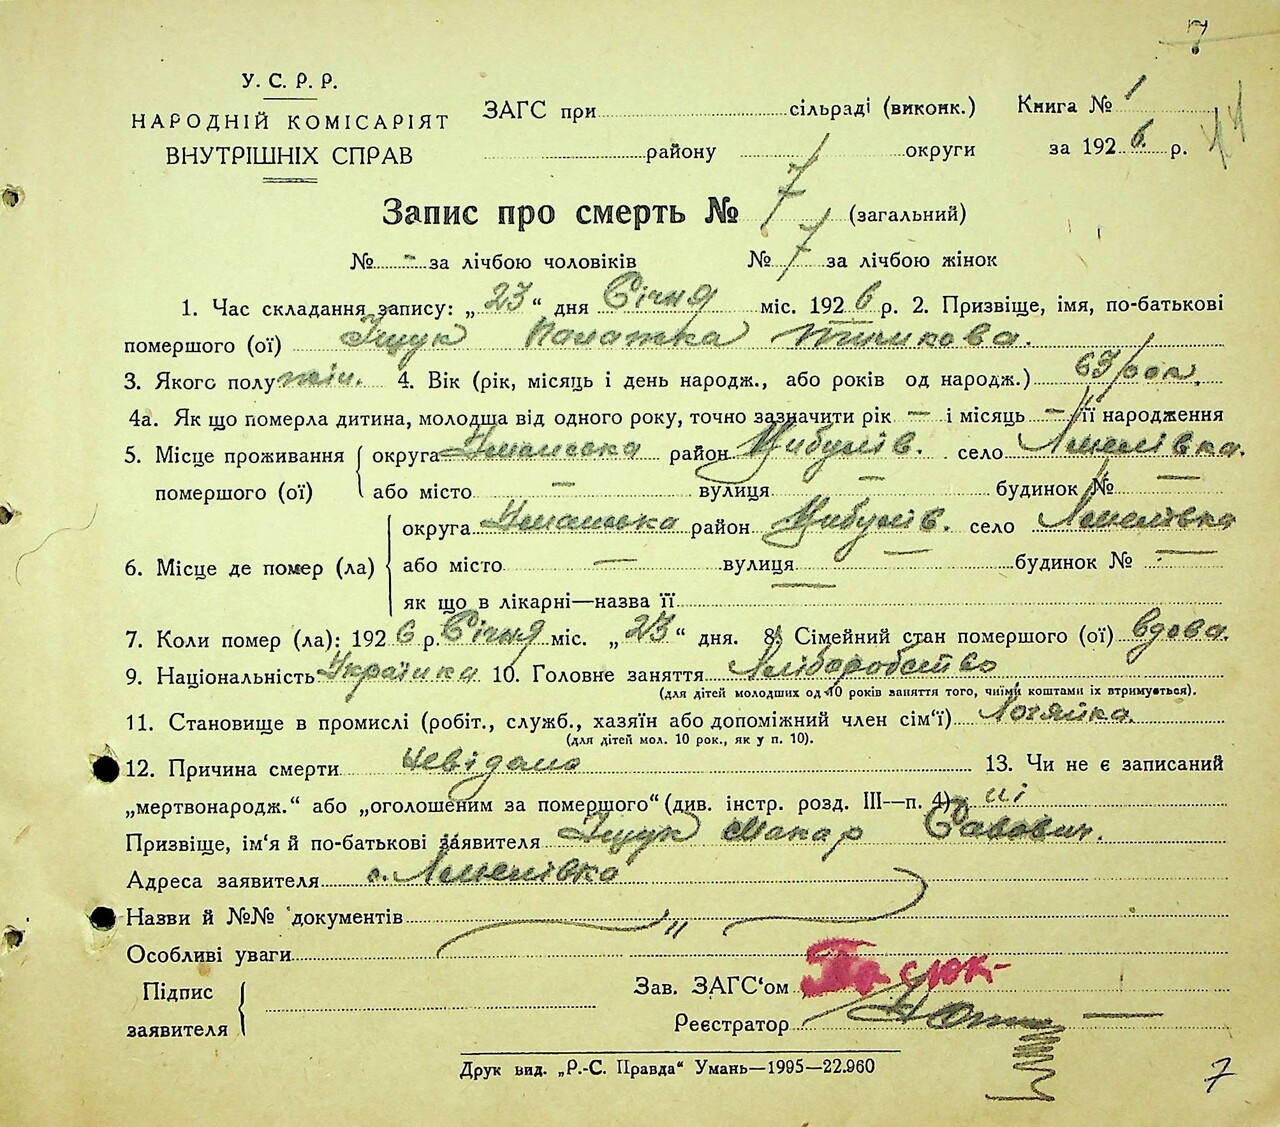 7
У. С. Р. Р.
НАРОДНІЙ КОМІСАРІЯТ
ВНУТРІШНІХ СПРАВ
ЗАГС при сільраді (виконк.)
району округи
Книга № 1
за 1926 р.
Запис про смерть № 7 (загальний)
№ - за лічбою чоловіків № 7 за лічбою жінок
1. Час складання запису: „23“ дня Січня міс. 1926 р. 2. Призвіще, імя, по-батькові
помершого (ої) Іщук
3. Якого полу жін. 4. Вік (рік, місяць і день народж., або років од народж.) 63 рок.
4а. Як що померла дитина, молодща від одного року, точно зазначити рік — і місяць — її народження
5. Місце проживання помершого (ої) округа Уманська район Цибулів. село
або місто — вулиця — будинок № —
6. Місце де помер (ла) округа Уманська район Цибулів. село
або місто — вулиця — будинок № —
як що в лікарні—назва її
7. Коли помер (ла): 1926 р. Січня міс. „23“ дня. 8. Сімейний стан помершого (ої) вдова.
9. Національність Українка 10. Головне заняття Хліборобство
(для дітей молодших од 10 років заняття того, чиїми коштами їх втримується).
11. Становище в промислі (робіт., служб., хазяїн або допоміжний член сім‘ї) Хозяйка
(для дітей мол. 10 рок., як у п. 10).
12. Причина смерти невідома 13. Чи не є записаний
„мертвонародж.“ або „оголошеним за помершого“ (див. інстр. розд. III—п. 4) ні
Призвіще, ім‘я й по-батькові заявителя Іщук Макар Савович.
Адреса заявителя с.
Назви й №№ документів "
Особливі уваги
Підпис заявителя
Зав. ЗАГС‘ом
Реєстратор
Друк вид. „Р.-С. Правда“ Умань—1995—22.960
7